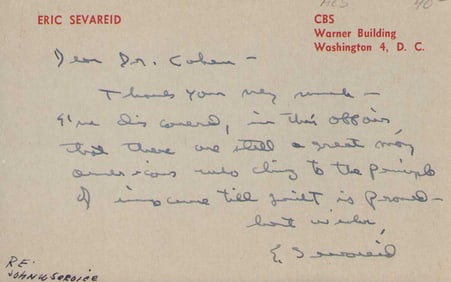 ERIC SEVAREID
CBS
Warner Building
Washington 4, D. C.
Dear Dr. Cohen –
Thank you very much –
I've discovered, in this affair,
that there are still a great many
Americans who cling to the principle
of innocence till guilt is proved –
best wishes,
E Sevareid
RE:
JOHN W SERVICE
40-